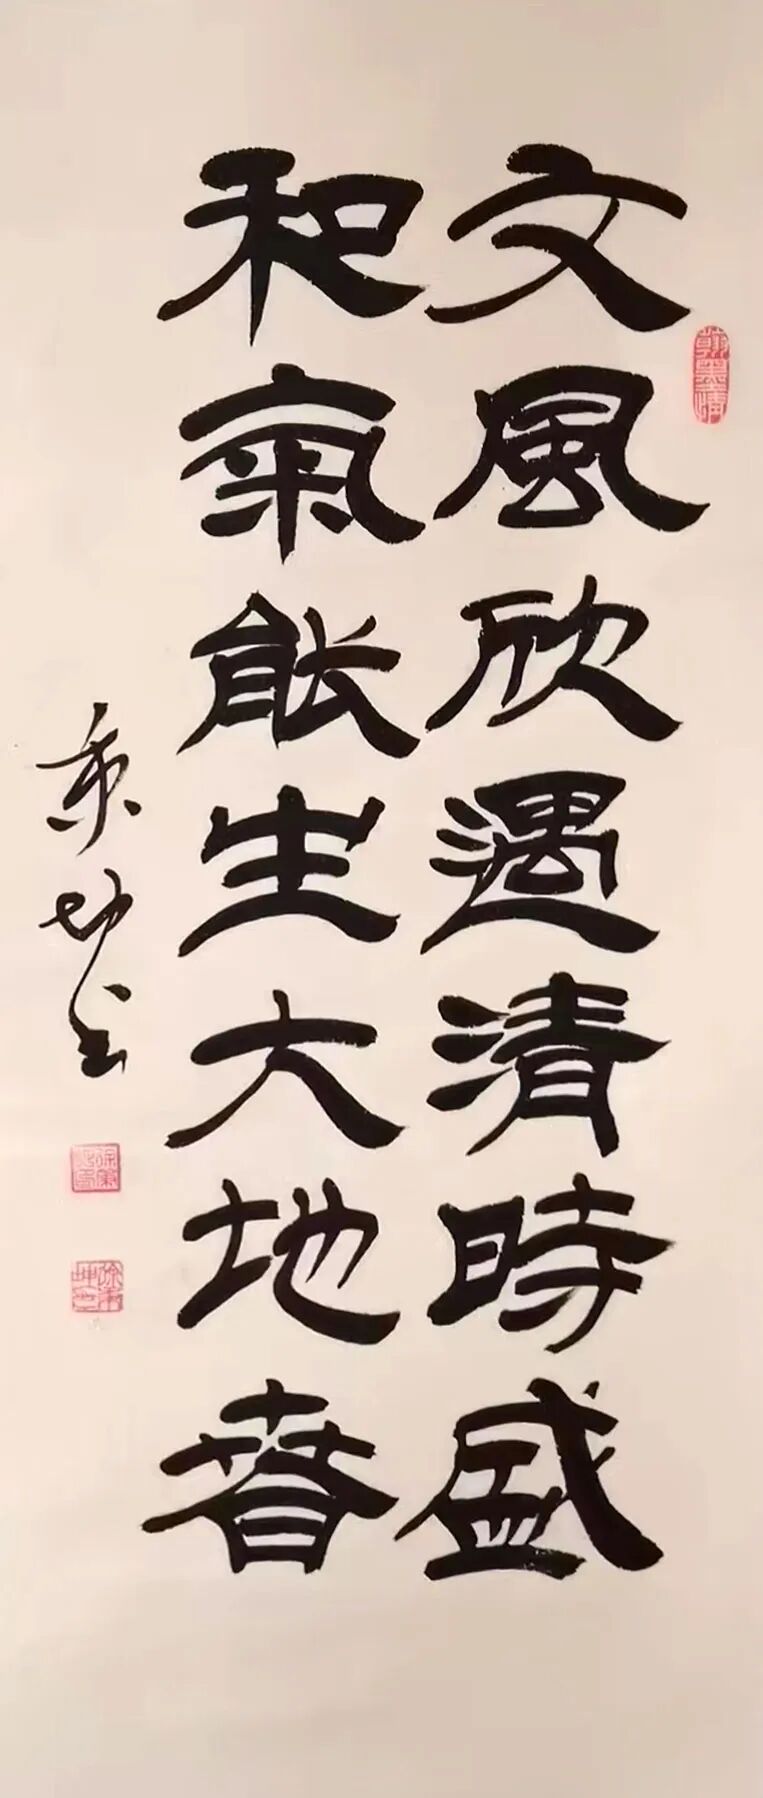 文風欣遇清時盛
和氣能生大地春
翰墨情